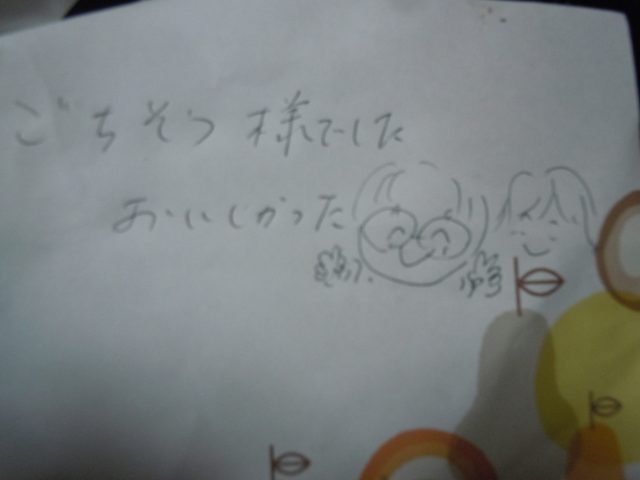 ごちそう様でした
おいしかった